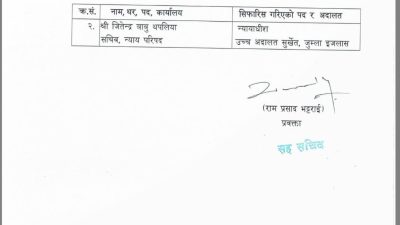 क्र.सं. नाम, थर, पद, कार्यालय सिफारिस गरिएको पद र अदालत
२. श्री जितेन्द्र बाबु थपलिया न्यायाधीश
सचिव, न्याय परिषद उच्च अदालत सुर्खेत, जुम्ला इजलास
(राम प्रसाद भट्टराई)
प्रवक्ता
सह सचिव